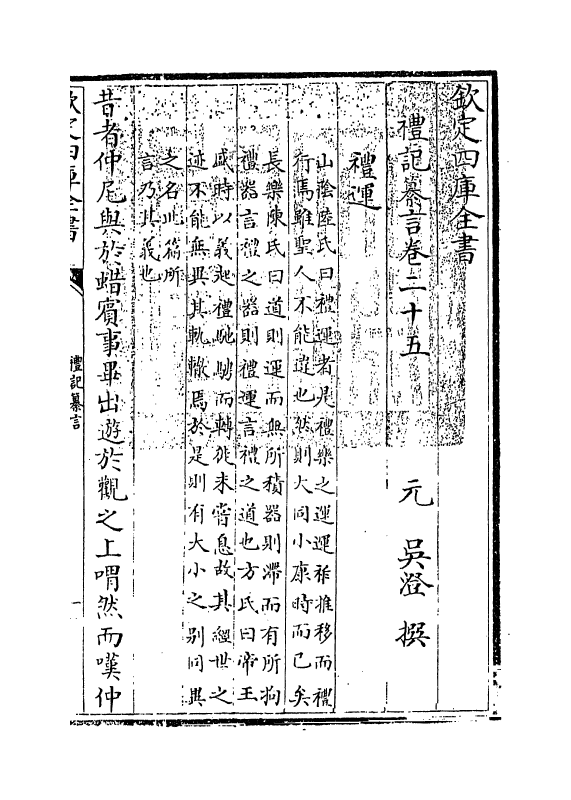 欽定四庫全書
禮記纂言卷二十五　元　吳澄　撰
禮運
山陰陸氏曰禮運者凡禮樂之運運祚推移而禮
行焉雖聖人不能違也然則大同小康時而已矣
長樂陳氏曰道則運而無所積器則滯而有所拘
禮器言禮之器則禮運言禮之道也方氏曰帝王
感時以義起禮馳騁而轉徙未嘗息故其經世之
迹不能無異其軌轍焉於是則有大小之别同異
之名此篇所
言乃其義也
昔者仲尼與於蜡賓事畢出遊於觀之上喟然而嘆仲
欽定四庫全書
禮記纂言
一